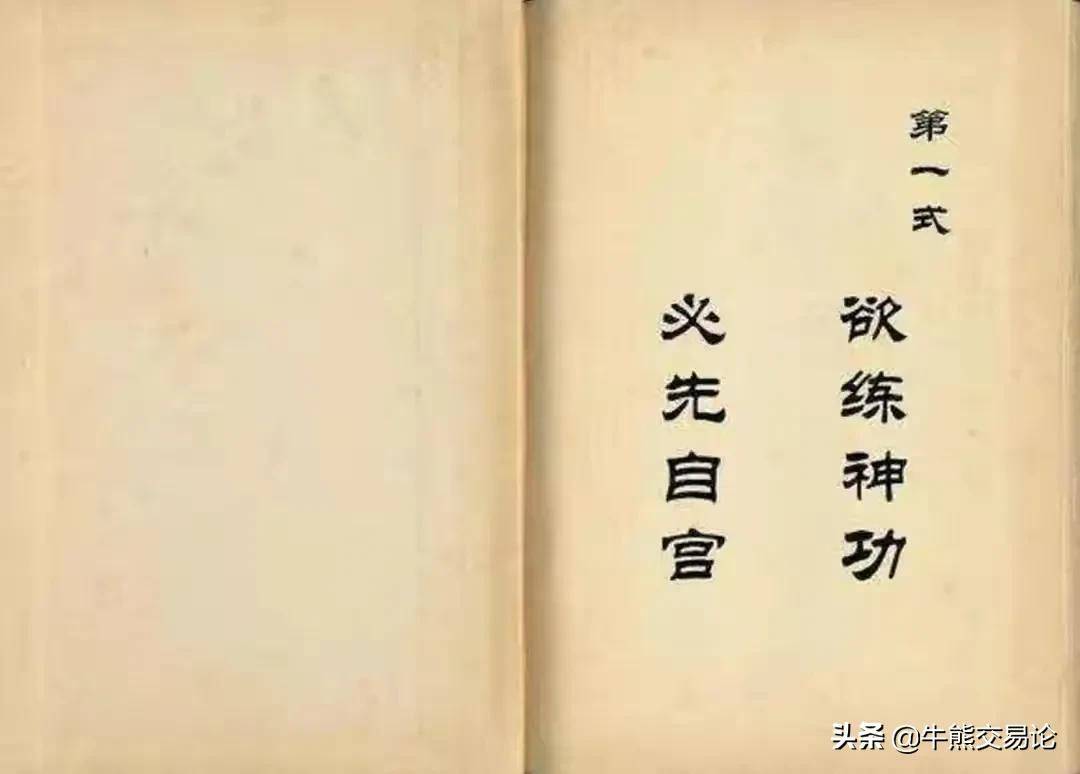 第一式
欲练神功
必先自宫
头条 @牛熊交易论